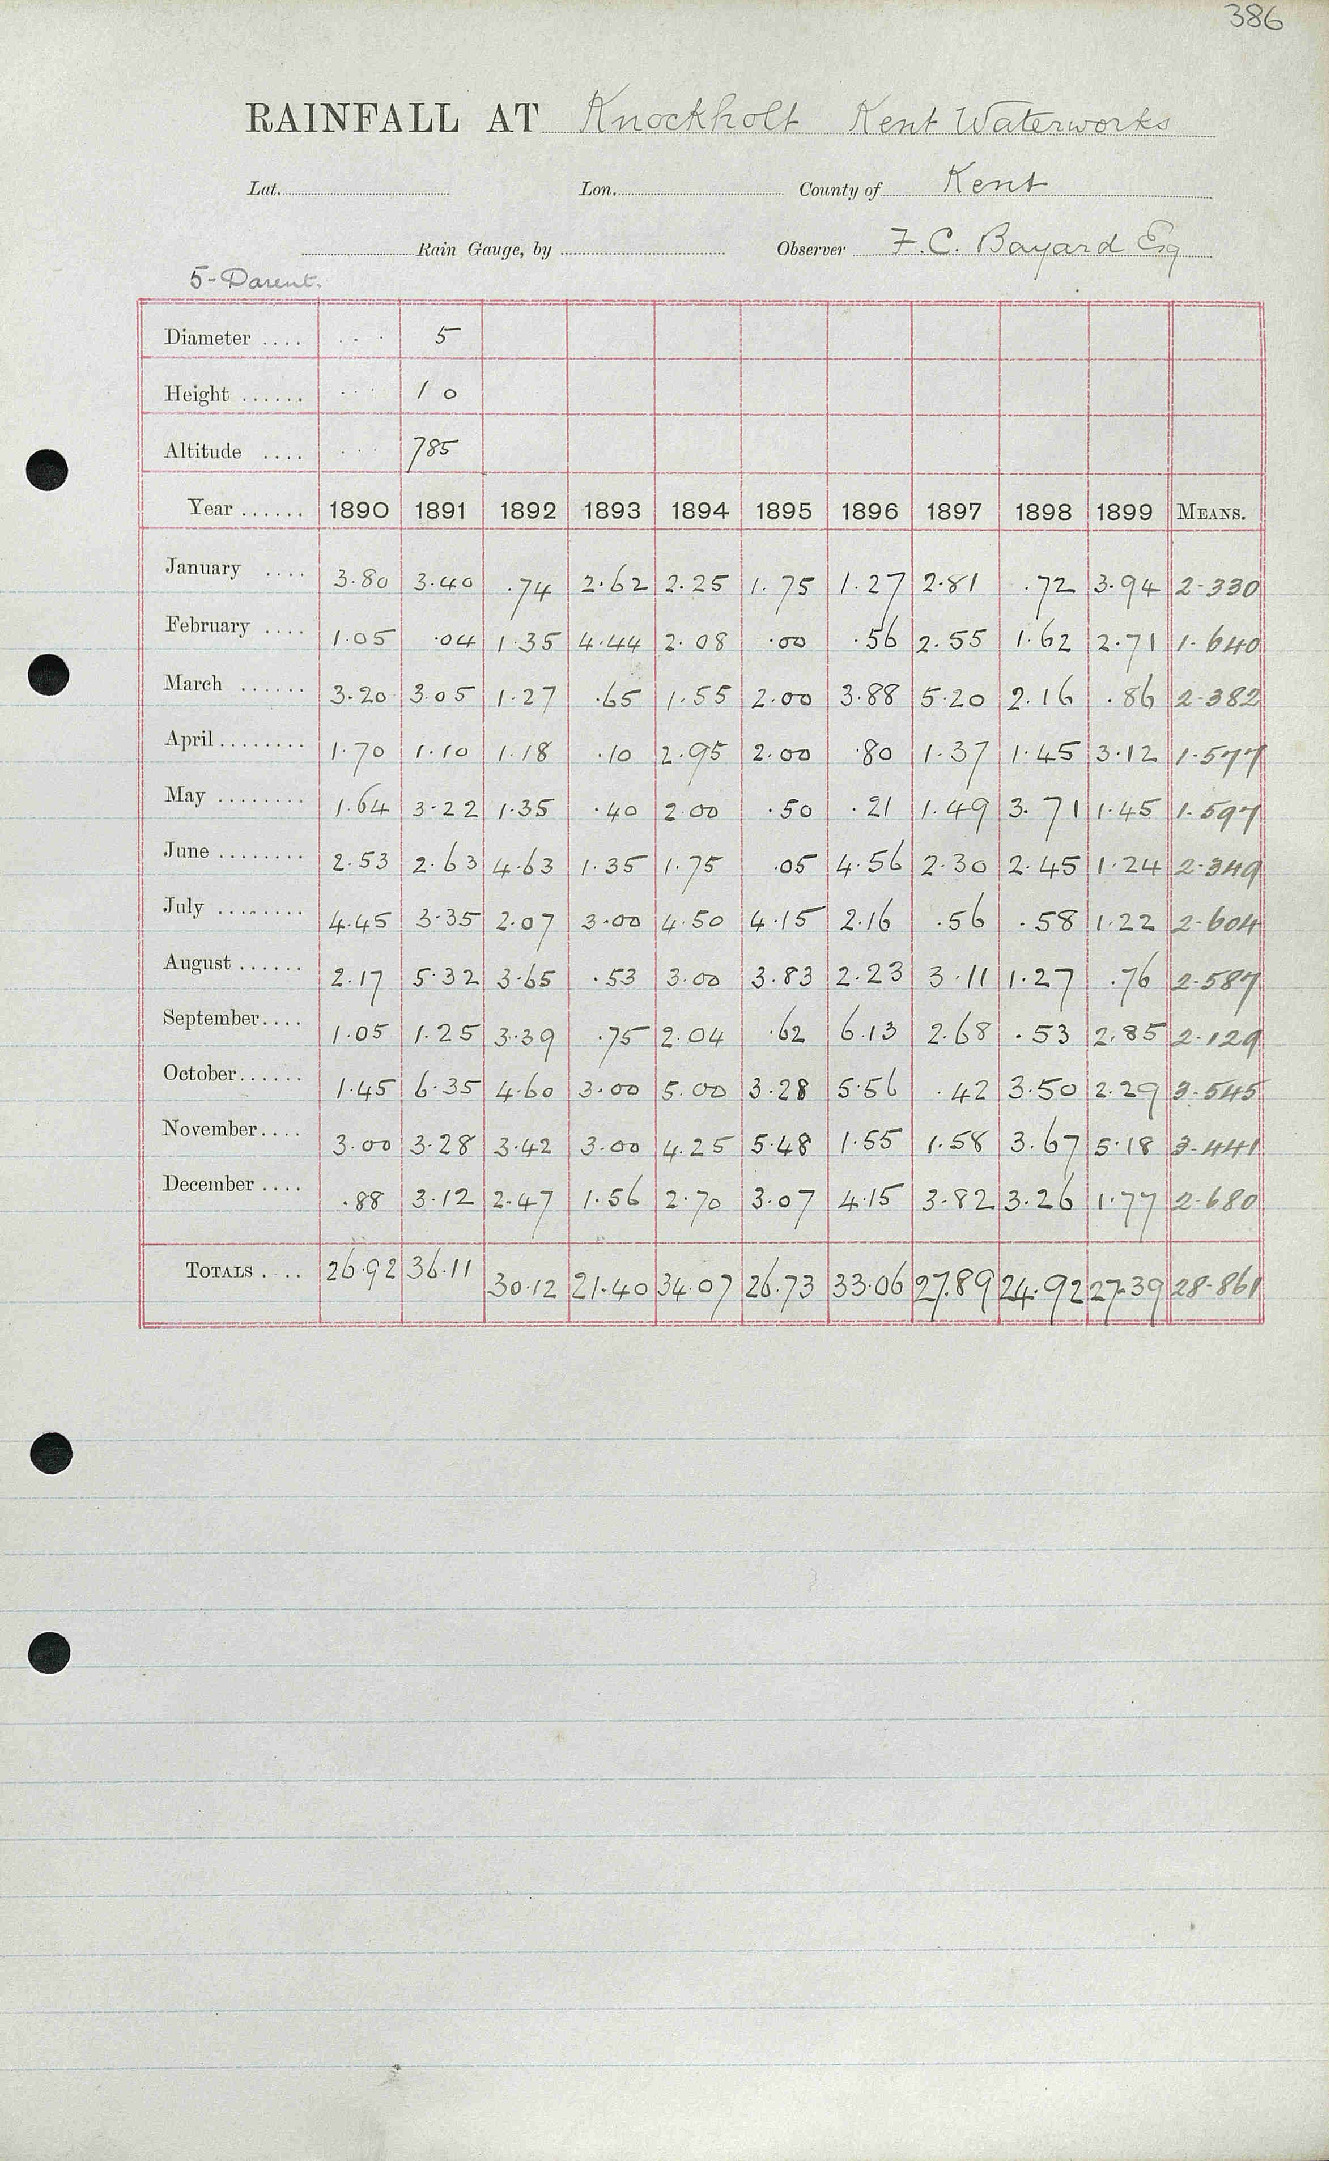 386
RAINFALL AT Knockholt Kent Waterworks
Lat. Lon. County of Kent
Rain Gauge, by Observer F. C. Bayard Esq
5-Parent.
Diameter .... ... 5
Height ...... ... 1 0
Altitude .... ... 785
Year ...... 1890 1891 1892 1893 1894 1895 1896 1897 1898 1899 MEANS.
January .... 3.80 3.40 .74 2.62 2.25 1.75 1.27 2.81 .72 3.94 2.330
February .... 1.05 .04 1.35 4.44 2.08 .00 .56 2.55 1.62 2.71 1.640
March ...... 3.20 3.05 1.27 .65 1.55 2.00 3.88 5.20 2.16 .86 2.382
April ........ 1.70 1.10 1.18 .10 2.95 2.00 .80 1.37 1.45 3.12 1.577
May ........ 1.64 3.22 1.35 .40 2.00 .50 .21 1.49 3.71 1.45 1.597
June ........ 2.53 2.63 4.63 1.35 1.75 .05 4.56 2.30 2.45 1.24 2.349
July ........ 4.45 3.35 2.07 3.00 4.50 4.15 2.16 .56 .58 1.22 2.604
August ...... 2.17 5.32 3.65 .53 3.00 3.83 2.23 3.11 1.27 .76 2.587
September .... 1.05 1.25 3.39 .75 2.04 .62 6.13 2.68 .53 2.85 2.129
October ...... 1.45 6.35 4.60 3.00 5.00 3.28 5.56 .42 3.50 2.29 3.545
November .... 3.00 3.28 3.42 3.00 4.25 5.48 1.55 1.58 3.67 5.18 3.441
December .... .88 3.12 2.47 1.56 2.70 3.07 4.15 3.82 3.26 1.77 2.680
TOTALS .... 26.92 36.11 30.12 21.40 34.07 26.73 33.06 27.89 24.92 27.39 28.861